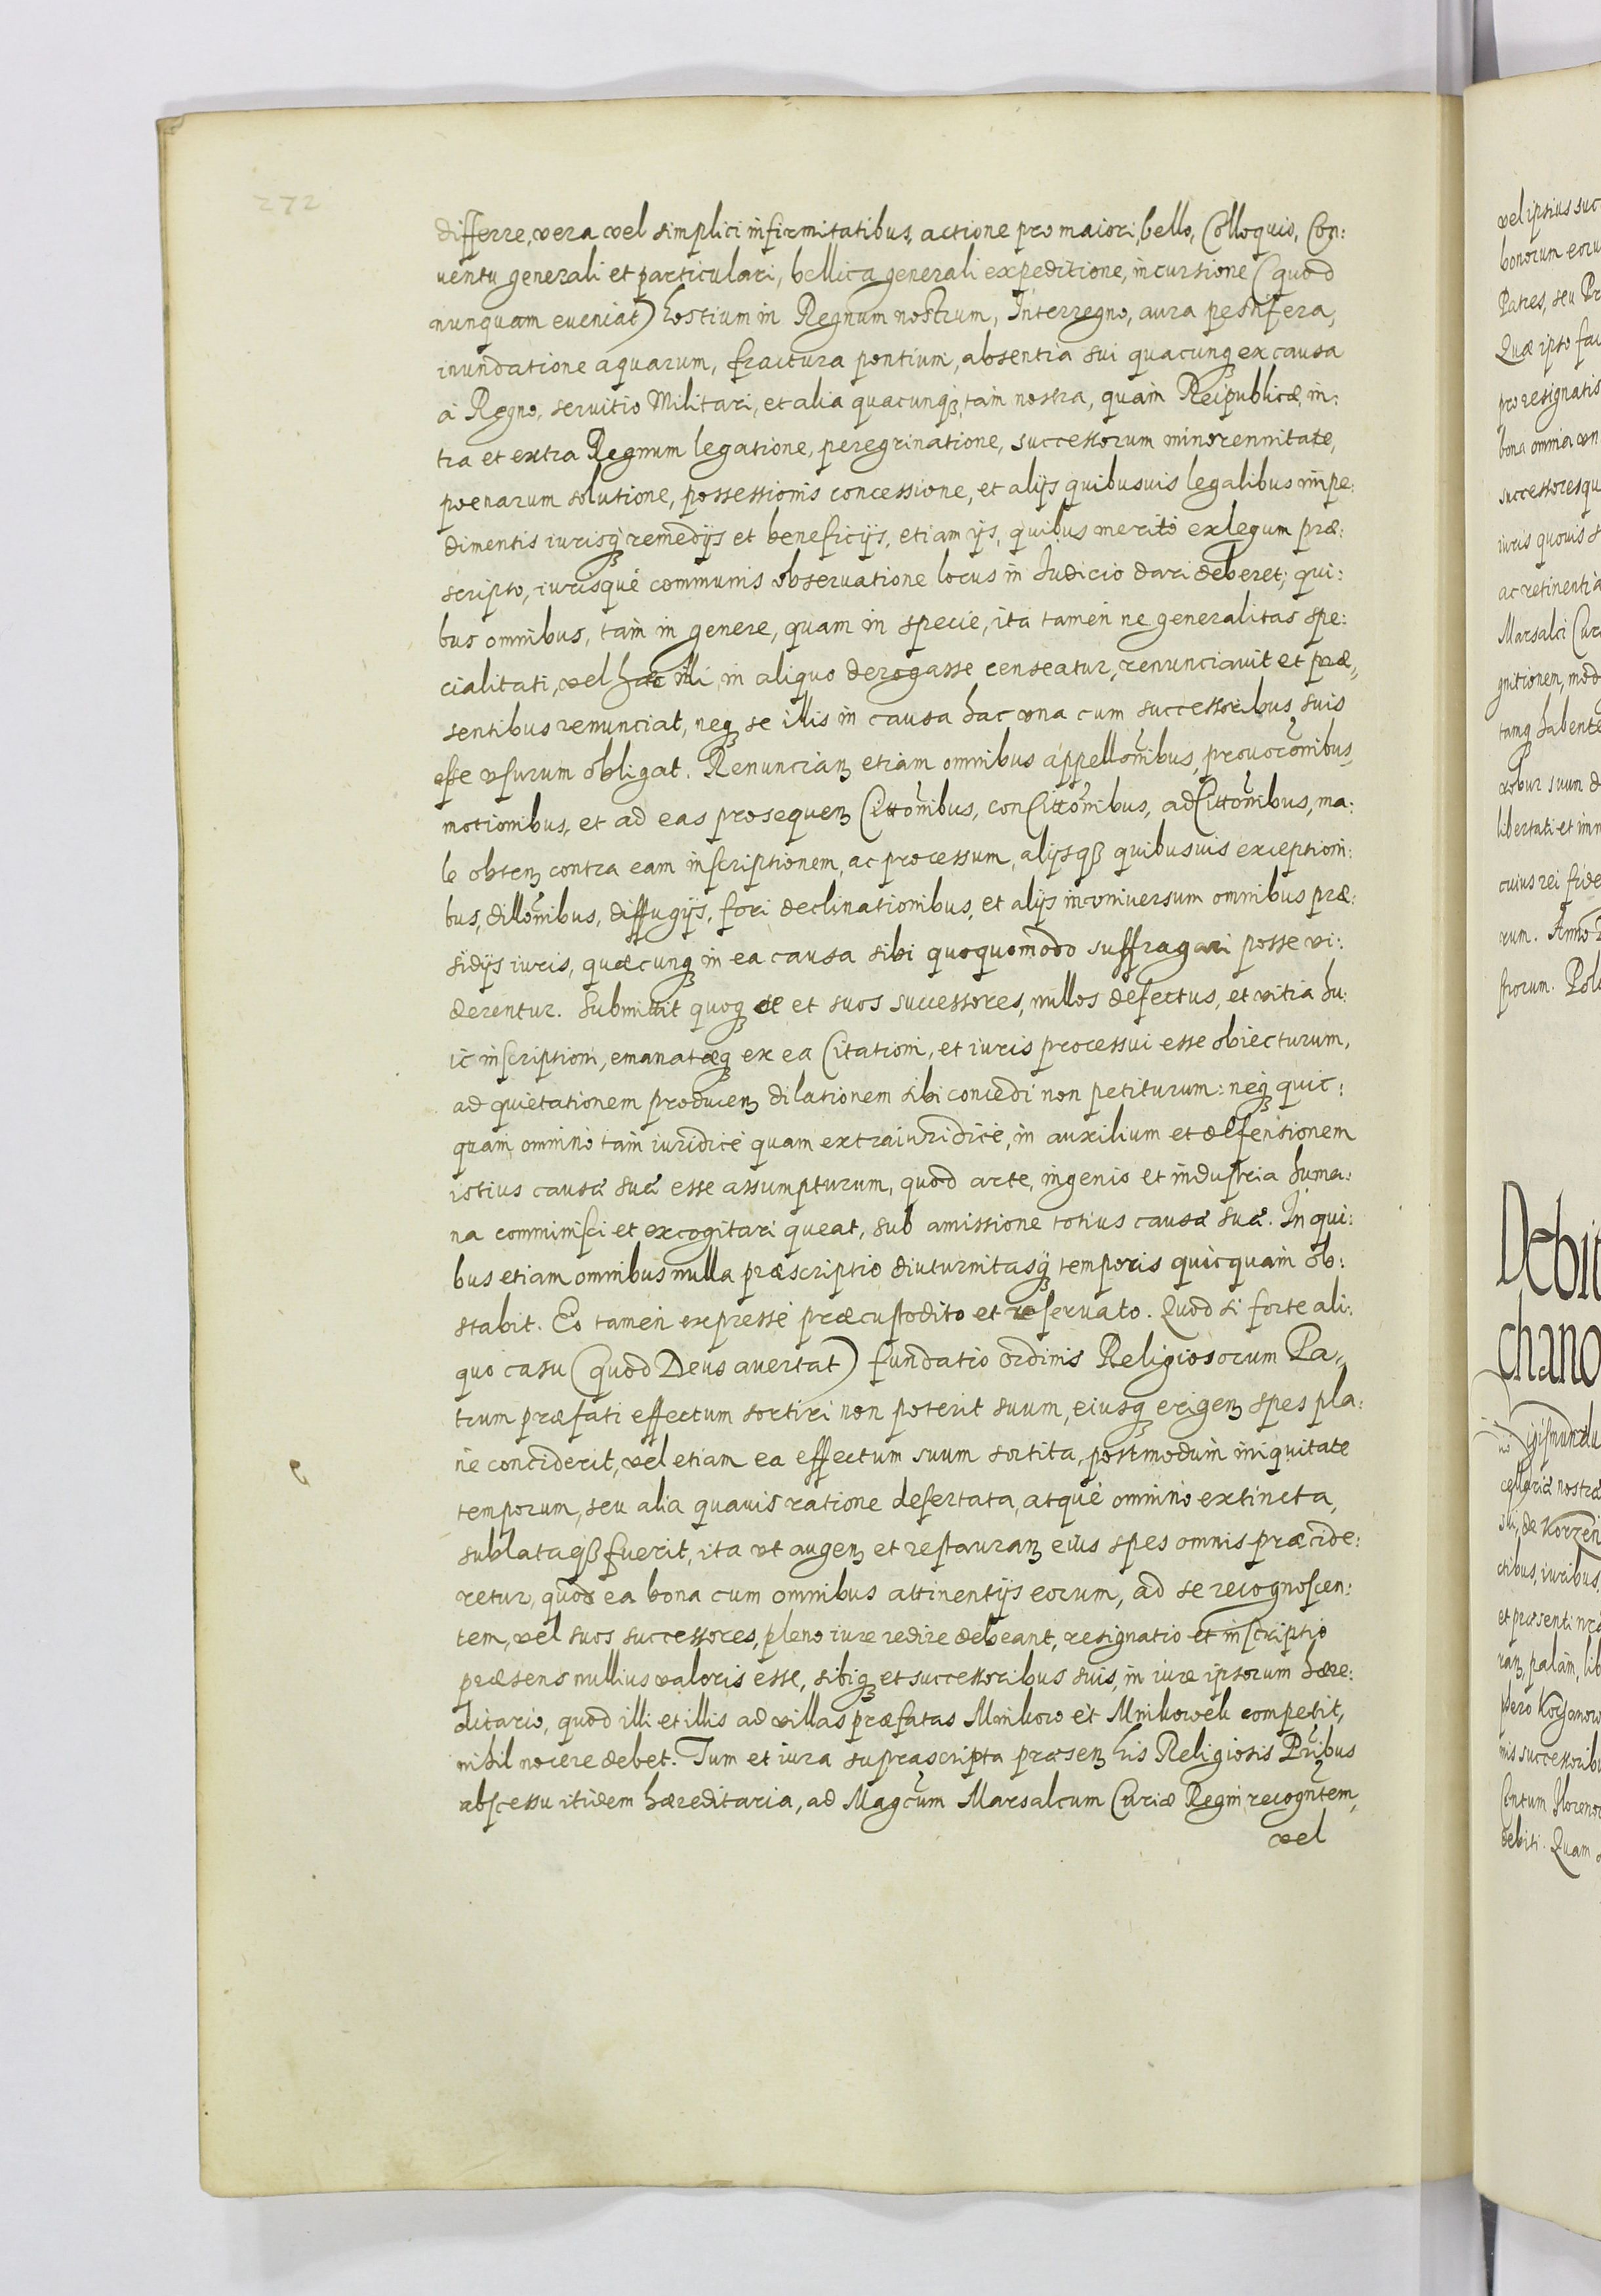 272
differre, vera vel simplici infirmitatibus, actione pro maiori, bello, Colloquio, Con:
ventu generali et particulari, bellica generali expeditione, incursione (quod
nunquam eveniat) hostium in Regnum nostrum, Interregno, aura pestifera,
inundatione aquarum, fractura pontium, absentia sui quacunqꝫ ex causa
à Regno, servitio Militari, et alia quacunqꝫ, tam nostra, quàm Reipublicæ, in:
tra et extra Regnum legatione, peregrinatione, successorum minorennitate,
poenarum solutione, possessionis concessione, et alijs quibusvis legalibus impe:
dimentis iurisqꝫ remedijs et beneficijs, etiam ijs, quibus meritò ex legum præ:
scripto, iurisque communis observatione locus in Iudicio dari deberet; qui:
bus omnibus, tàm in genere, quam in specie, ita tamen ne generalitas spe:
cialitati, vel hæc illi, in aliquo derogasse censeatur, renunciavit et præ„
sentibus renunciat, neqꝫ se illis in causa hac una cum successoribus suis
esse usurum obligat. Renuncianꝫ etiam omnibus appellõnibus, provocõnibus,
motionibus, et ad eas prosequenꝫ Cittõnibus, conCittõnibus, adCittõnibus, ma:
le obtenꝫ contra eam inscriptionem, ac processum, alijsqꝫ quibusvis exceptioni:
bus, dillõnibus, diffugijs, fori declinationibus, et alijs in universum omnibus præ:
sidijs iuris, quæcunqꝫ in ea causa sibi quoquomodo suffragari posse vi:
derentur. Submittit quoqꝫ se et suos successores, nullos defectus, et vitia hu:
ic inscriptioni, emanatæqꝫ ex ea Citationi, et iuris processui esse obiecturum,
ad quietationem producenꝫ dilationem sibi concedi non petiturum: neqꝫ quic:
quam omninò tàm iuridicè quam extraiuridicè, in auxilium et defensionem
istius causæ suæ esse assumpturum, quod arte, ingenio et industria huma:
na comminisci et excogitari queat, sub amissione totius causæ suæ. In qui:
bus etiam omnibus nulla præscriptio diuturnitasqꝫ temporis quicquam ob:
stabit. Eo tamen expressè præcustodito et reservato. Quod si forte ali:
quo casu (quod Deus avertat) fundatio ordinis Religiosorum Pa„
trum præfati effectum sortiri non poterit suum, eiusqꝫ erigenꝫ spes pla:
nè conciderit, vel etiam ea effectum suum sortita, postmodum iniquitate
temporum, seu alia quavis ratione desertata, atque omninò extincta,
sublataqꝫ fuerit, ita ut augenꝫ et restauranꝫ eius spes omnis præcide:
retur, quod ea bona cum omnibus attinentijs eorum, ad se recognoscen:
tem, vel suos successores, pleno iure redire debeant, resignatio et inscriptio
præsens nullius valoris esse, sibiqꝫ et successoribus suis, in iure ipsorum hære:
ditario, quod illi et illis ad villas præfatas Mnikow et Mnikowek competit,
nihil nocere debet. Tum et iura suprascripta præsenꝫ his Religiosis Pribus
abscessu itidem hæreditaria, ad Magcum Marsalcum Curiæ Regni recogntem,
vel
vel ipsius suc
Patres, seu Pr
Quæ ipso fac
pro resignatis
bona omnia un
successoresqu
iuris quovis
ac retinentia
Marsalci Cur
gnitionem, mod
tamqꝫ habente
robur suum
cuius rei fide
rum. Anno
strorum. Pol
Debit
chano
cellariæ nostræ
ctibus, iuribus,
ranꝫ, palam, lib
nis successorib
debiti. Quam